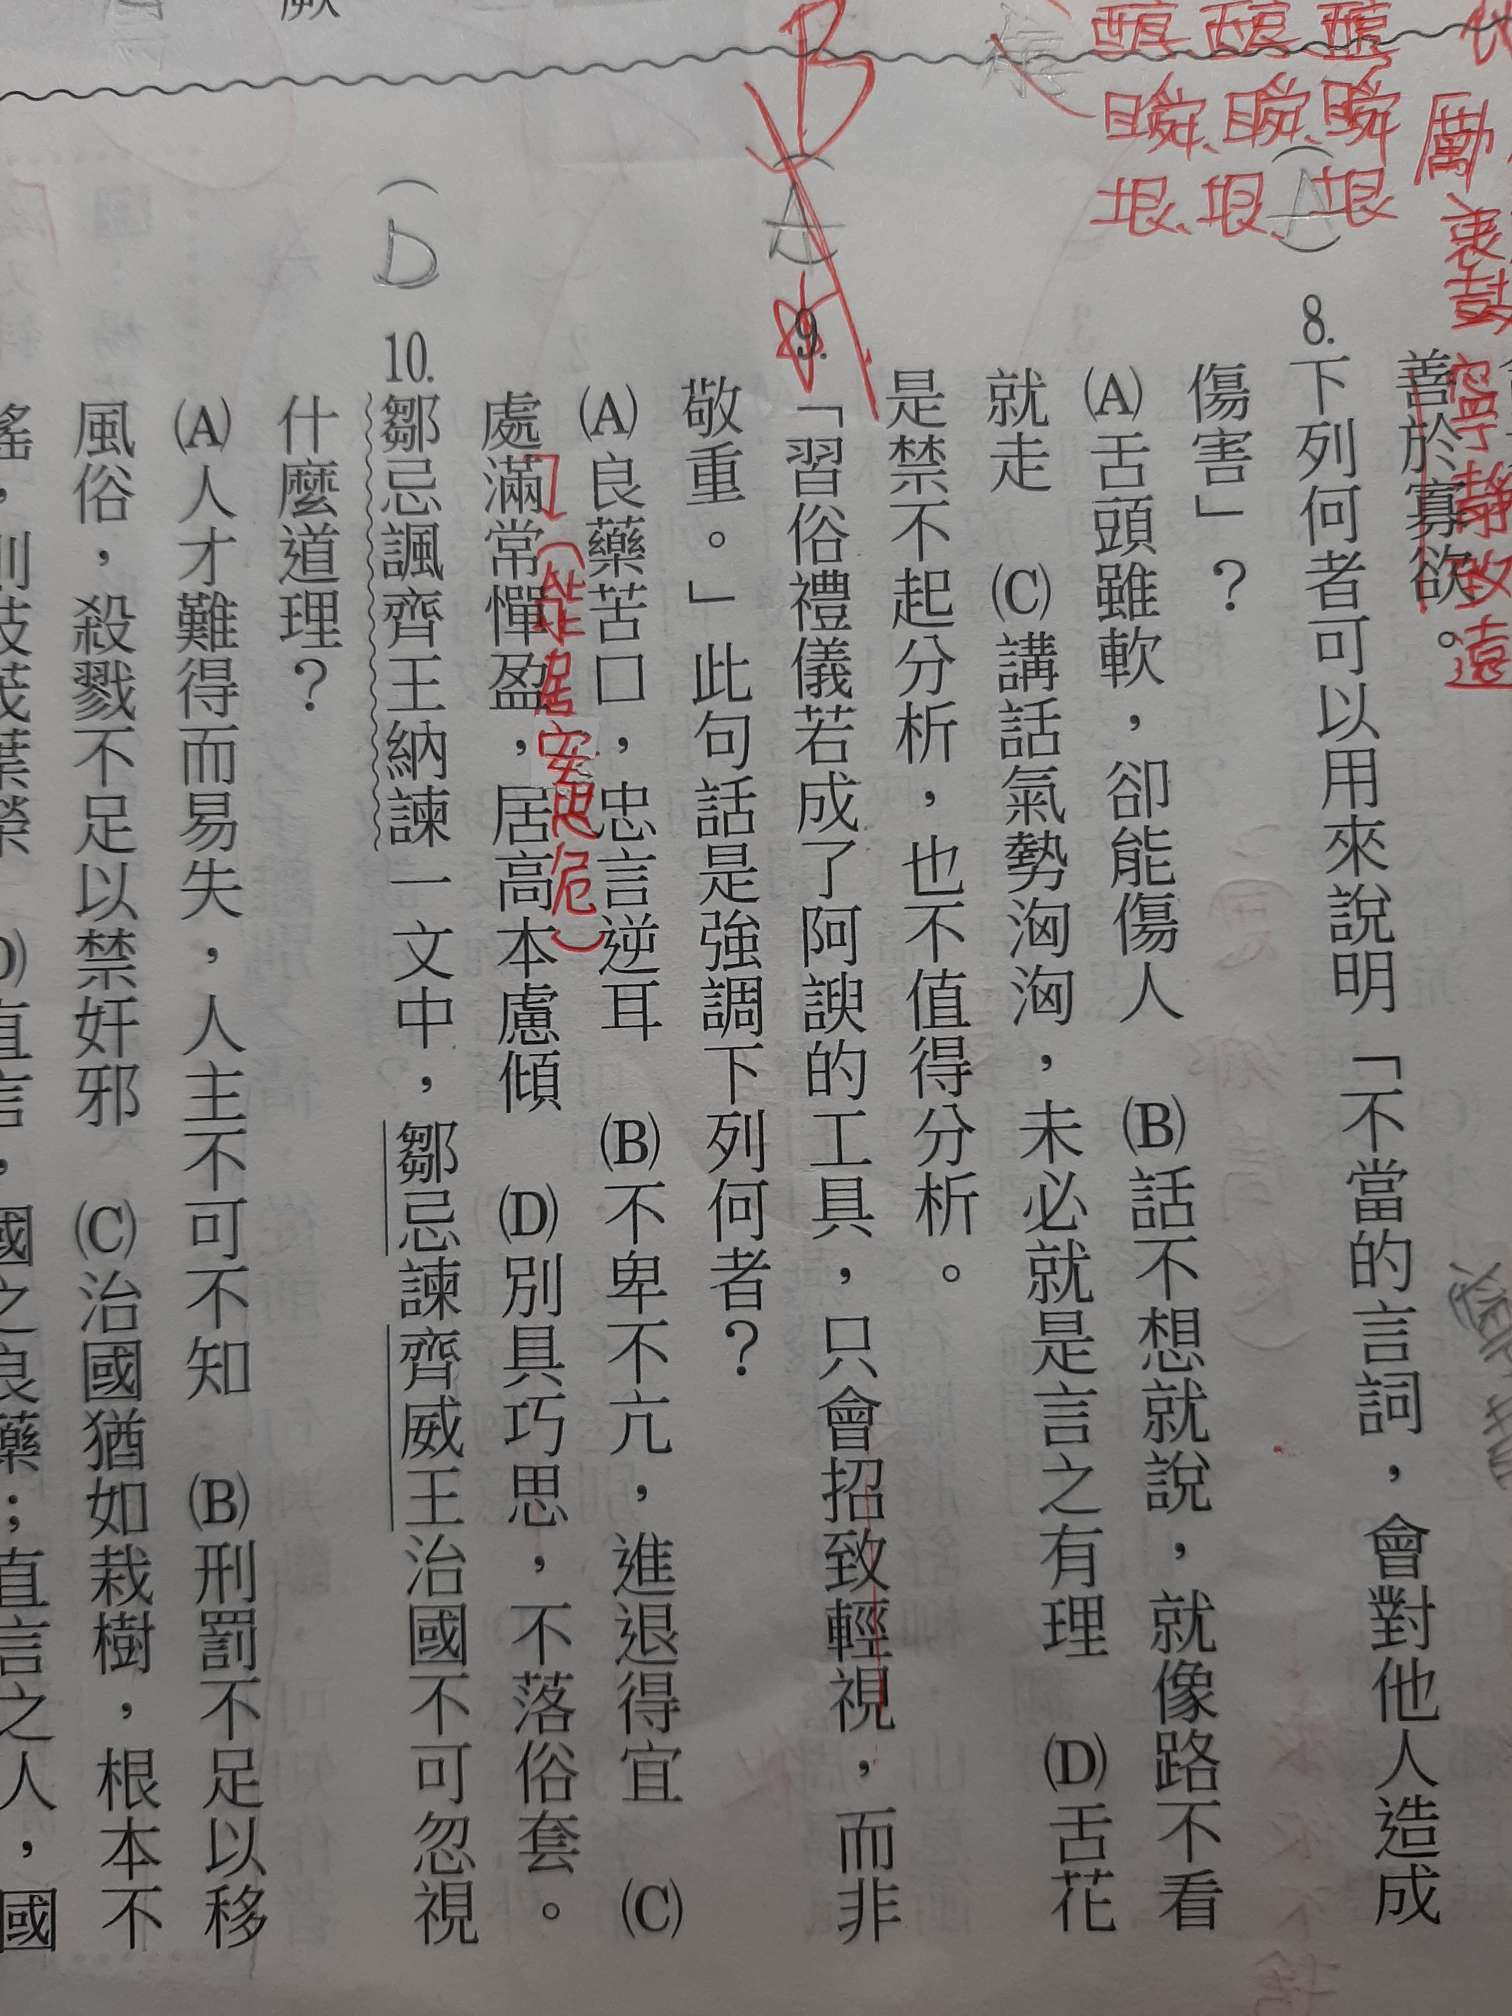 醇醇醇
瞬、瞬、瞬
垠、垠、垠
勵
衷
鼓
寧靜致遠
善於寡欲。
(A)
8.下列何者可以用來說明「不當的言詞，會對他人造成
傷害」？
(A)舌頭雖軟，卻能傷人　(B)話不想就說，就像路不看
就走　(C)講話氣勢洶洶，未必就是言之有理　(D)舌花
是禁不起分析，也不值得分析。
B
(A)
9.「習俗禮儀若成了阿諛的工具，只會招致輕視，而非
敬重。」此句話是強調下列何者？
(A)良藥苦口，忠言逆耳　(B)不卑不亢，進退得宜　(C)
(能居安思危)
處滿常憚盈，居高本慮傾　(D)別具巧思，不落俗套。
(D
10.鄒忌諷齊王納諫一文中，鄒忌諫齊威王治國不可忽視
什麼道理？
(A)人才難得而易失，人主不可不知　(B)刑罰不足以移
風俗，殺戮不足以禁奸邪　(C)治國猶如栽樹，根本不
搖，則枝茂葉榮　(D)直言，國之良藥；直言之人，國